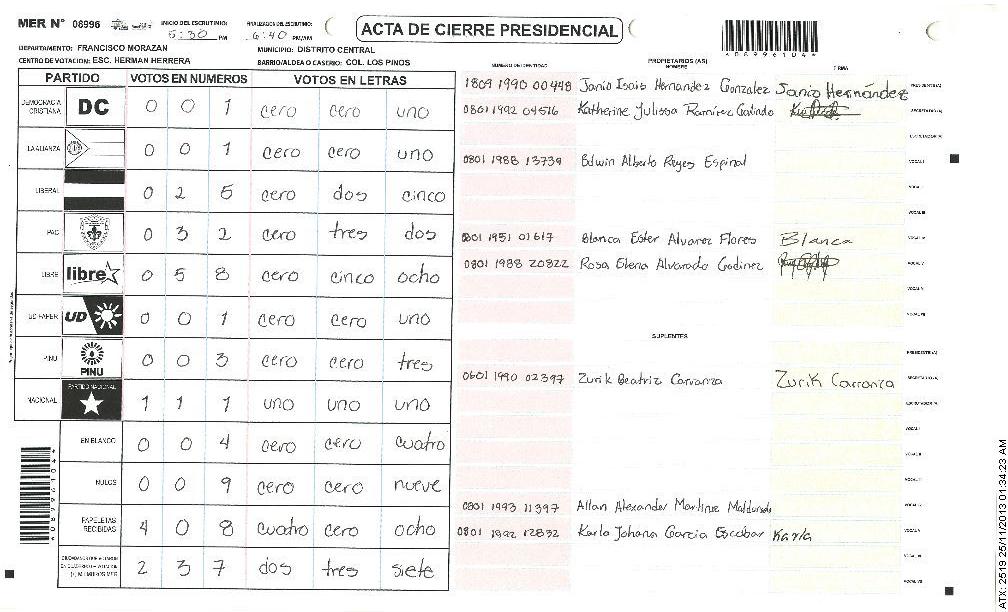 MER N° 08996 INICIO DEL ESCRUTINIO: 5:30 PM FINALIZACION DEL ESCRUTINIO: 6:40 PM/AM
ACTA DE CIERRE PRESIDENCIAL
*08996104*
DEPARTAMENTO: FRANCISCO MORAZAN MUNICIPIO: DISTRITO CENTRAL
CENTRO DE VOTACION: ESC. HERMAN HERRERA BARRIO/ALDEA O CASERIO: COL. LOS PINOS
PARTIDO VOTOS EN NUMEROS VOTOS EN LETRAS
DEMOCRACIA CRISTIANA DC 0 0 1 cero cero uno
LA ALIANZA 0 0 1 cero cero uno
LIBERAL 0 2 5 cero dos cinco
PAC 0 3 2 cero tres dos
LIBRE libre 0 5 8 cero cinco ocho
UD FAPER UD 0 0 1 cero cero uno
PINU PINU 0 0 3 cero cero tres
NACIONAL PARTIDO NACIONAL 1 1 1 uno uno uno
EN BLANCO 0 0 4 cero cero cuatro
NULOS 0 0 9 cero cero nueve
PAPELETAS RECIBIDAS 4 0 8 cuatro cero ocho
2 3 7 dos tres siete
*08996104*
NUMERO DE IDENTIDAD PROPIETARIOS (AS) NOMBRE FIRMA
1809 1990 00448 Janio Isais Hernandez Gonzalez Janio Hernández PRESIDENTE(A)
0801 1992 04516 Katherine Julissa Ramírez Galindo SECRETARIO(A)
ESCRUTADOR(A)
0801 1988 13739 Edwin Alberto Reyes Espinal VOCAL I
VOCAL II
VOCAL III
0801 1951 01617 Blanca Ester Alvarez Flores Blanca VOCAL IV
0801 1988 20822 Rosa Elena Alvarado Godinez VOCAL V
VOCAL VI
VOCAL VII
SUPLENTES
PRESIDENTE(A)
0601 1990 02397 Zurik Beatriz Carranza Zurik Carranza SECRETARIO(A)
ESCRUTADOR(A)
VOCAL I
VOCAL II
VOCAL III
0801 1993 11397 Allan Alexander Martinez Maldonado VOCAL IV
0801 1992 12832 Karla Johana Garcia Escobar Karla VOCAL V
VOCAL VI
VOCAL VII
ATX: 2519 25/11/2013 01:34:23 AM